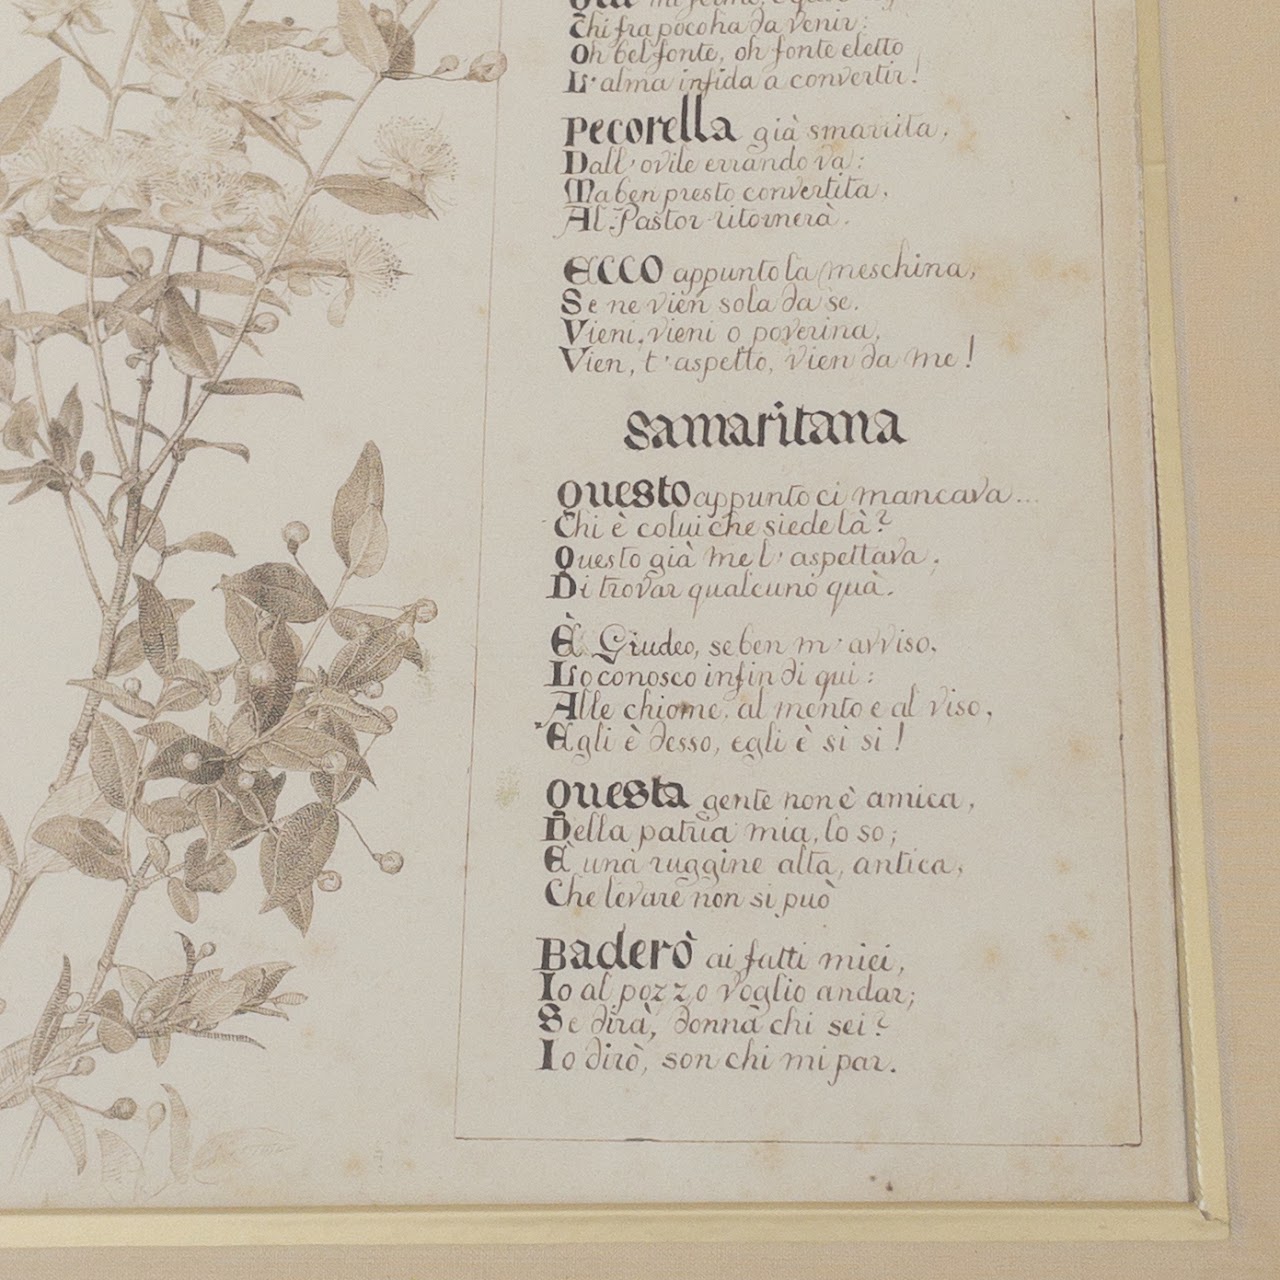 Chi fra poco ha da venir:
Oh bel fonte, oh fonte eletto
L'alma infida a convertir!
Pecorella già smarrita,
Dall'ovile errando va:
Ma ben presto convertita,
Al Pastor ritornerà.
ECCO appunto la meschina,
Se ne vien sola da se.
Vieni, vieni o poverina,
Vien, t'aspetto, vien da me!
Samaritana
Questo appunto ci mancava...
Chi è colui che siede là?
Questo già me l'aspettava,
Di trovar qualcuno quà.
È Giudeo, se ben m'avviso,
Lo conosco infin di qui:
Alle chiome, al mento e al viso,
Egli è desso, egli è si si!
Questa gente non è amica,
Della patria mia, lo so;
È una ruggine alta, antica,
Che levare non si può
Baderò ai fatti miei,
Io al pozzo voglio andar;
Se dirà, donna chi sei?
Io dirò, son chi mi par.